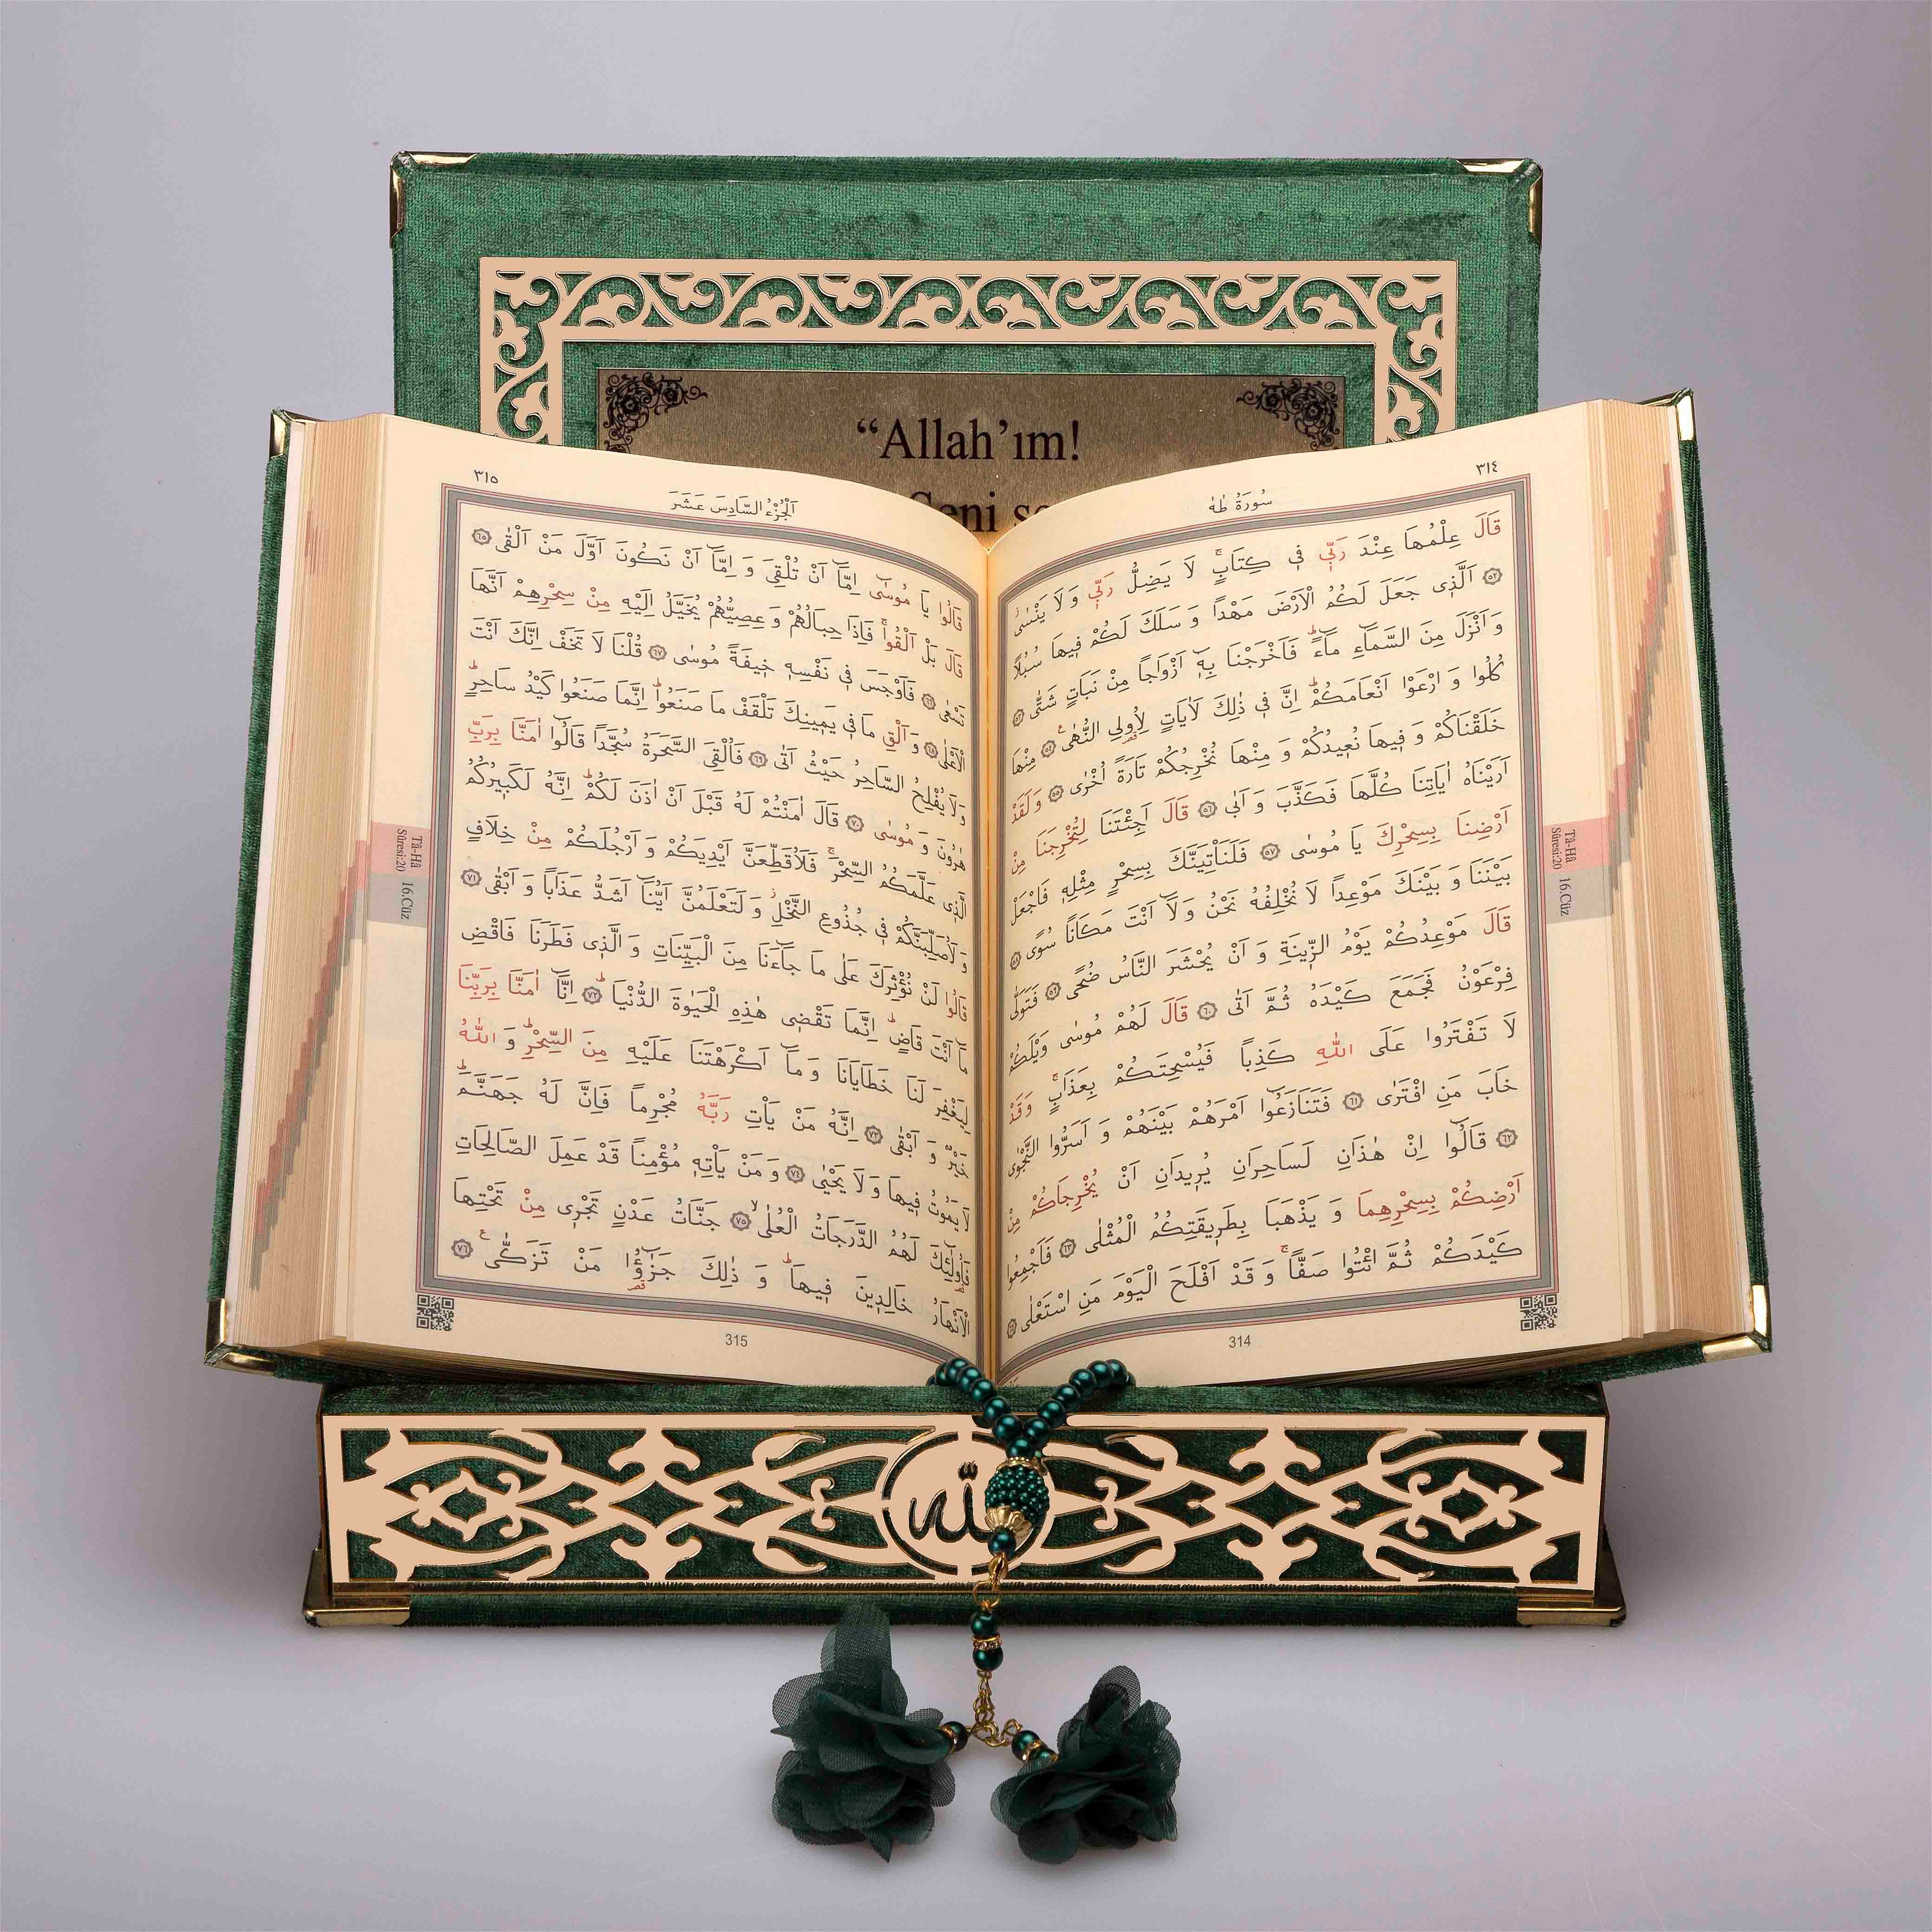 “Allah’ım!
Seni
٣١٤
سُورَةُ طٰهٰ
قَالَ عِلْمُهَا عِنْدَ رَبّ۪ي ف۪ي كِتَابٍۚ لَا يَضِلُّ رَبّ۪ي وَلَا يَنْسٰىۘ
﴿٥٢﴾ اَلَّذ۪ي جَعَلَ لَكُمُ الْاَرْضَ مَهْدًا وَسَلَكَ لَكُمْ ف۪يهَا سُبُلًا
وَاَنْزَلَ مِنَ السَّمَٓاءِ مَٓاءًۜ فَاَخْرَجْنَا بِه۪ٓ اَزْوَاجًا مِنْ نَبَاتٍ شَتّٰى ﴿٥٣﴾
كُلُوا وَارْعَوْا اَنْعَامَكُمْۜ اِنَّ ف۪ي ذٰلِكَ لَاٰيَاتٍ لِاُو۬لِي النُّهٰى۟ ﴿٥٤﴾ مِنْهَا
خَلَقْنَاكُمْ وَف۪يهَا نُع۪يدُكُمْ وَمِنْهَا نُخْرِجُكُمْ تَارَةً اُخْرٰى ﴿٥٥﴾ وَلَقَدْ
اَرَيْنَاهُ اٰيَاتِنَا كُلَّهَا فَكَذَّبَ وَاَبٰى ﴿٥٦﴾ قَالَ اَجِئْتَنَا لِتُخْرِجَنَا مِنْ
اَرْضِنَا بِسِحْرِكَ يَا مُوسٰى ﴿٥٧﴾ فَلَنَأْتِيَنَّكَ بِسِحْرٍ مِثْلِه۪ فَاجْعَلْ
بَيْنَنَا وَبَيْنَكَ مَوْعِدًا لَا نُخْلِفُهُ نَحْنُ وَلَٓا اَنْتَ مَكَانًا سُوًى ﴿٥٨﴾
قَالَ مَوْعِدُكُمْ يَوْمُ الزّ۪ينَةِ وَاَنْ يُحْشَرَ النَّاسُ ضُحًى ﴿٥٩﴾ فَتَوَلّٰى
فِرْعَوْنُ فَجَمَعَ كَيْدَهُ ثُمَّ اَتٰى ﴿٦٠﴾ قَالَ لَهُمْ مُوسٰى وَيْلَكُمْ
لَا تَفْتَرُوا عَلَى اللّٰهِ كَذِبًا فَيُسْحِتَكُمْ بِعَذَابٍۚ وَقَدْ
خَابَ مَنِ افْتَرٰى ﴿٦١﴾ فَتَنَازَعُٓوا اَمْرَهُمْ بَيْنَهُمْ وَاَسَرُّوا النَّجْوٰى
﴿٦٢﴾ قَالُٓوا اِنْ هٰذَانِ لَسَاحِرَانِ يُر۪يدَانِ اَنْ يُخْرِجَاكُمْ مِنْ
اَرْضِكُمْ بِسِحْرِهِمَا وَيَذْهَبَا بِطَر۪يقَتِكُمُ الْمُثْلٰى ﴿٦٣﴾ فَاَجْمِعُوا
كَيْدَكُمْ ثُمَّ ائْتُوا صَفًّاۚ وَقَدْ اَفْلَحَ الْيَوْمَ مَنِ اسْتَعْلٰى ﴿٦٤﴾
314
Tâ-Hâ
Sûresi:20
16.Cüz
٣١٥
اَلْجُزْءُ السَّادِسَ عَشَرَ
قَالُوا يَا مُوسٰٓى اِمَّٓا اَنْ تُلْقِيَ وَاِمَّٓا اَنْ نَكُونَ اَوَّلَ مَنْ اَلْقٰى ﴿٦٥﴾
قَالَ بَلْ اَلْقُواۚ فَاِذَا حِبَالُهُمْ وَعِصِيُّهُمْ يُخَيَّلُ اِلَيْهِ مِنْ سِحْرِهِمْ اَنَّهَا
تَسْعٰى ﴿٦٦﴾ فَاَوْجَسَ ف۪ي نَفْسِه۪ خ۪يفَةً مُوسٰى ﴿٦٧﴾ قُلْنَا لَا تَخَفْ اِنَّكَ اَنْتَ
الْاَعْلٰى ﴿٦٨﴾ وَاَلْقِ مَا ف۪ي يَم۪ينِكَ تَلْقَفْ مَا صَنَعُواۜ اِنَّمَا صَنَعُوا كَيْدُ سَاحِرٍۜ
وَلَا يُفْلِحُ السَّاحِرُ حَيْثُ اَتٰى ﴿٦٩﴾ فَاُلْقِيَ السَّحَرَةُ سُجَّدًا قَالُٓوا اٰمَنَّا بِرَبِّ
هٰرُونَ وَمُوسٰى ﴿٧٠﴾ قَالَ اٰمَنْتُمْ لَهُ قَبْلَ اَنْ اٰذَنَ لَكُمْۜ اِنَّهُ لَكَب۪يرُكُمُ
الَّذ۪ي عَلَّمَكُمُ السِّحْرَۚ فَلَاُقَطِّعَنَّ اَيْدِيَكُمْ وَاَرْجُلَكُمْ مِنْ خِلَافٍ
وَلَاُصَلِّبَنَّكُمْ ف۪ي جُذُوعِ النَّخْلِۘ وَلَتَعْلَمُنَّ اَيُّنَٓا اَشَدُّ عَذَابًا وَاَبْقٰى ﴿٧١﴾
قَالُوا لَنْ نُؤْثِرَكَ عَلٰى مَا جَٓاءَنَا مِنَ الْبَيِّنَاتِ وَالَّذ۪ي فَطَرَنَا فَاقْضِ
مَٓا اَنْتَ قَاضٍۜ اِنَّمَا تَقْض۪ي هٰذِهِ الْحَيٰوةَ الدُّنْيَاۜ ﴿٧٢﴾ اِنَّٓا اٰمَنَّا بِرَبِّنَا
لِيَغْفِرَ لَنَا خَطَايَانَا وَمَٓا اَكْرَهْتَنَا عَلَيْهِ مِنَ السِّحْرِۜ وَاللّٰهُ
خَيْرٌ وَاَبْقٰى ﴿٧٣﴾ اِنَّهُ مَنْ يَأْتِ رَبَّهُ مُجْرِمًا فَاِنَّ لَهُ جَهَنَّمَۜ
لَا يَمُوتُ ف۪يهَا وَلَا يَحْيٰى ﴿٧٤﴾ وَمَنْ يَأْتِه۪ مُؤْمِنًا قَدْ عَمِلَ الصَّالِحَاتِ
فَاُو۬لٰٓئِكَ لَهُمُ الدَّرَجَاتُ الْعُلٰىۙ ﴿٧٥﴾ جَنَّاتُ عَدْنٍ تَجْر۪ي مِنْ تَحْتِهَا
الْاَنْهَارُ خَالِد۪ينَ ف۪يهَاۜ وَذٰلِكَ جَزٰٓؤُ۬ا مَنْ تَزَكّٰى۟ ﴿٧٦﴾
315
Tâ-Hâ
Sûresi:20
16.Cüz
اللّٰه